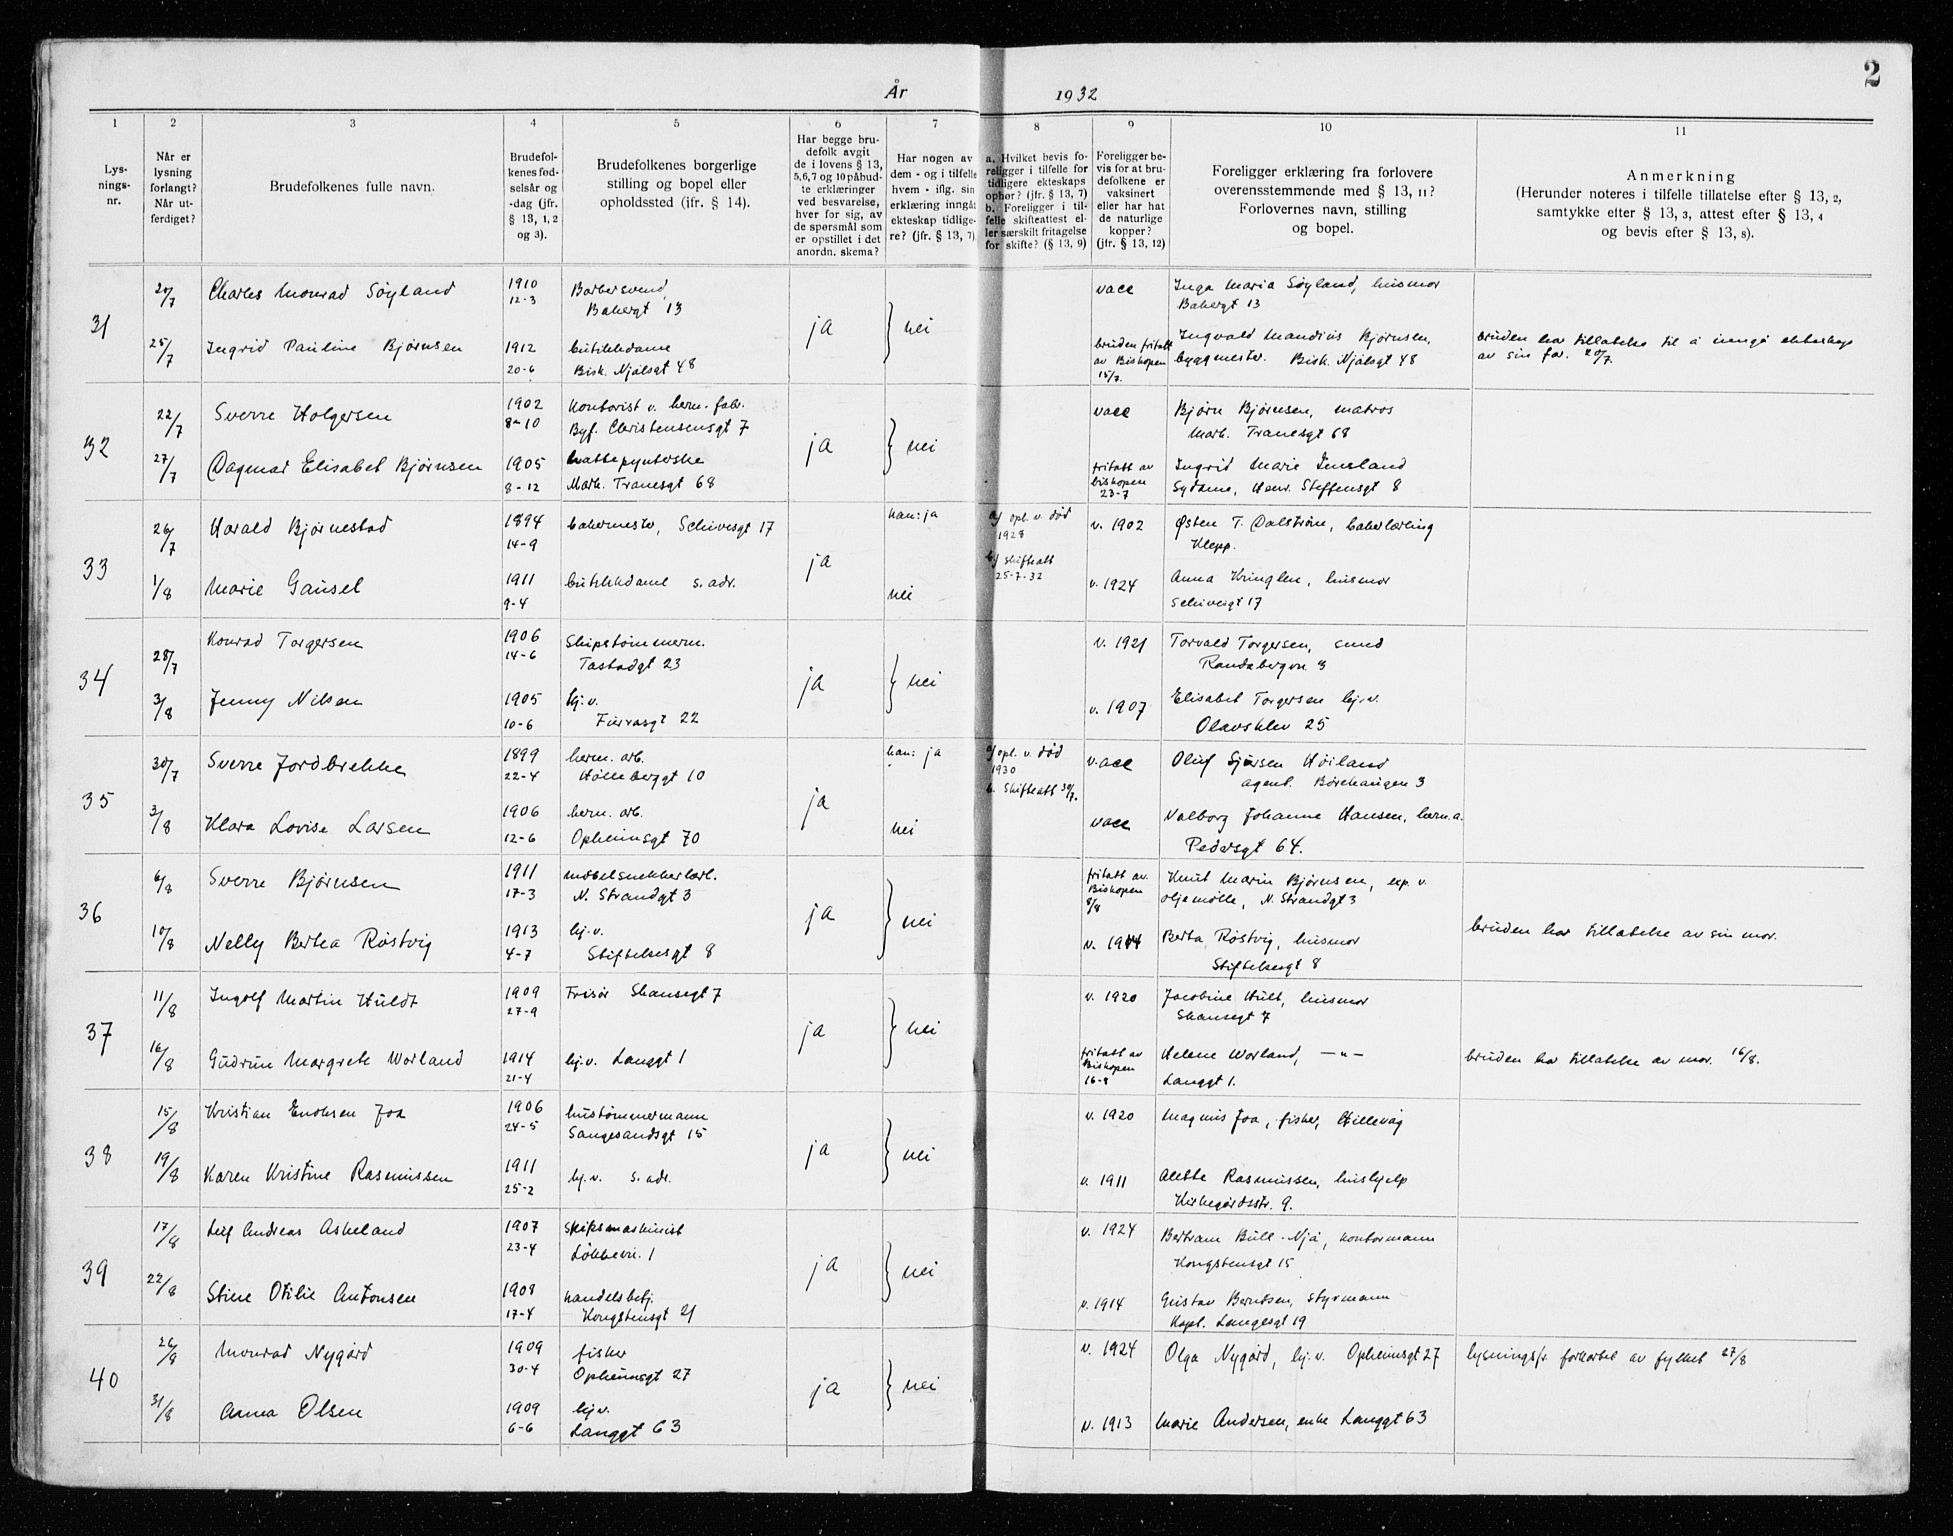 2
År 1932
1 2 3 4 5 6 7 8 9 10 11
Lys-
nings-
nr.
Når er
lysning
forlangt?
Når ut-
ferdiget?
Brudefolkenes fulle navn.
Brudefol-
kenes fød-
selsår og
-dag (jfr.
§ 13, 1, 2
og 3).
Brudefolkenes borgerlige
stilling og bopel eller
opholdssted (ifr. § 14).
Har begge bru-
defolk avgit
de i lovens § 13,
5,6,7 og 10 påbud-
te erklæringer
ved besvarelse,
hver for sig, av
de spørsmål som
er opstillet i det
anordn. skema?
Har nogen av
dem - og i tilfelle
hvem - iflg. sin
erklæring inngåt
ekteskap tidlige-
re? (jfr. § 13, 7)
a. Hvilket bevis fo-
religger i tilfelle for
tidligere ekteskaps
ophør? (jfr. § 13, 7)
b. Foreligger i til-
felle skifteattest el-
ler særskilt fritagelse
for skifte? (§ 13, 9)
Foreligger be-
vis for at bru-
defolkene er
vaksinert
eller har hat
de naturlige
kopper?
(jfr. § 13, 12)
Foreligger erklæring fra forlovere
overensstemmende med § 13, 11?
Forlovernes navn, stilling
og bopel.
Anmerkning
(Herunder noteres i tilfelle tillatelse efter § 13, 2,
samtykke efter § 13, 3, attest efter § 13, 4
og bevis efter § 13, 8).
31
20/7 Charles Monrad Søyland 1910 Barbersvend, vacc Inga Maria Søyland, husmor
12-3 Bakergt 13 Bakergt 13
ja nei
25/7 Ingrid Pauline Bjørnsen 1912 butikkdame bruden fritatt Ingvald Mandius Bjørnsen, bruden har tillatelse til å inngå ekteskap
20-6 Bisk. Njålsgt 48 av Biskopen byggmester. Bisk. Njålsgt 48 av sin far. 20/7.
15/7.
32
22/7 Sverre Holgersen 1902 Kontorist v. herm. fabr. vacc Bjørn Bjørnsen, matros
8-10 Byf. Christensensgt 7 Mark. Tranesgt 68
ja nei
27/7 Dagmar Elisabet Bjørnsen 1905 hattepynterske fritatt av Ingrid Marie Imsland
8-12 Mark. Tranesgt 68 biskopen Sydame, Henr. Steffensgt 8
23-7
33
26/7 Harald Bjørnestad 1894 bakermester, Schivesgt 17 han: ja a/ opl. v. død v. 1902 Østen T. Dalstrøm, bakerlærling
14-9 1928 Klepp.
ja b/ skifteatt
25-7-32
1/8 Marie Gausel 1911 butikkdame s. adr. nei v. 1924 Anna Kringlen, husmor
9-4 Schivesgt 17
34
28/7 Konrad Torgersen 1906 Skipstømmerm. v. 1921 Torvald Torgersen, smed
14-6 Tastadgt 23 Randabergvn 3
ja nei
3/8 Jenny Nilsen 1905 hj.v. v. 1907 Elisabet Torgersen hj.v.
10-6 Furrasgt 22 Olavsklev 25
35
30/7 Sverre Jordbrekke 1899 herm. arb. han: ja a/ opl. v. død vacc Oluf Sjursen Høiland
22-4 Holbergsgt 10 1930 agent. Børehaugen 3
ja b. Skifteatt 30/7.
3/8 Klara Lovise Larsen 1906 herm. arb. nei vacc Valborg Johanne Hansen, herm.a.
12-6 Opheimsgt 70 Pedersgt 64.
36
6/8 Sverre Bjørnsen 1911 møbelsnekkerlærl. fritatt av Knut Marin Bjørnsen, exp. v.
17-3 N. Strandgt 3 Biskopen oljemølle, N. Strandgt 3
8/8
ja nei
10/8 Nelly Berta Røstvig 1913 hj.v. v. 1914 Berta Røstvig, husmor bruden har tillatelse av sin mor.
4-7 Stiftelsesgt 8 Stiftelsesgt 8
37
11/8 Ingolf Martin Huldt 1909 Frisør Skansegt 7 v. 1920 Jacobine Hult, husmor
27-9 Skansegt 7
ja nei
16/8 Gudrun Margrete Worland 1914 hj.v. Langgt 1 fritatt av Helene Worland, —"— bruden har tillatelse av mor. 16/8.
21-4 Biskopen Langgt 1.
16-8
38
15/8 Kristian Enoksen Joa 1906 hustømmermann v. 1920 Magnus Joa, fisker, Hillevåg
24-5 Sangesandsgt 15
ja nei
19/8 Karen Kristine Rasmussen 1911 hj.v. s. adr. v. 1911 Alette Rasmussen, hushjelp
25-2 Kirkegårdsstr. 9.
39
17/8 Leif Andreas Askeland 1907 skipsmaskinist v. 1924 Bertram Bull-Njå, kontormann
23-4 Løkkevn. 1 Kongstensgt 15
ja nei
22/8 Stine Otilie Antonsen 1908 handelsbetj. v. 1914 Gustav Berntsen, styrmann
17-4 Kongstensgt 21 Kapt. Langesgt 19
40
26/8 Monrad Nygård 1909 fisker v. 1924 Olga Nygård, hj.v. Opheimsgt 27 lysningsfr. forkortet av fylket 27/8
30-4 Opheimsgt 27
ja nei
31/8 Anna Olsen 1909 hj.v. v. 1913 Marie Andersen, enke Langgt 63
6-6 Langgt 63